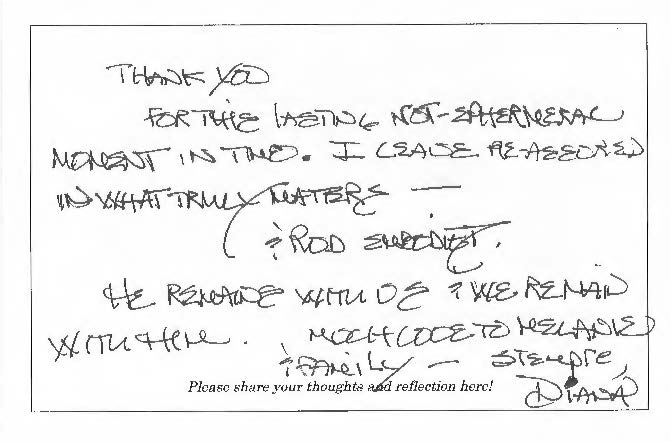 THANK YOU
FOR THIS LASTING NOT-EPHEMERAL
MOMENT IN TIME. I LEAVE RE-ASSURED
IN WHAT TRULY MATTERS —
& ROD
HE REMAINS WITH US & WE REMAIN
WITH HIM. MUCH LOVE TO MELANIE
& FAMILY — SIEMPRE,
Please share your thoughts and reflection here!
DIANA